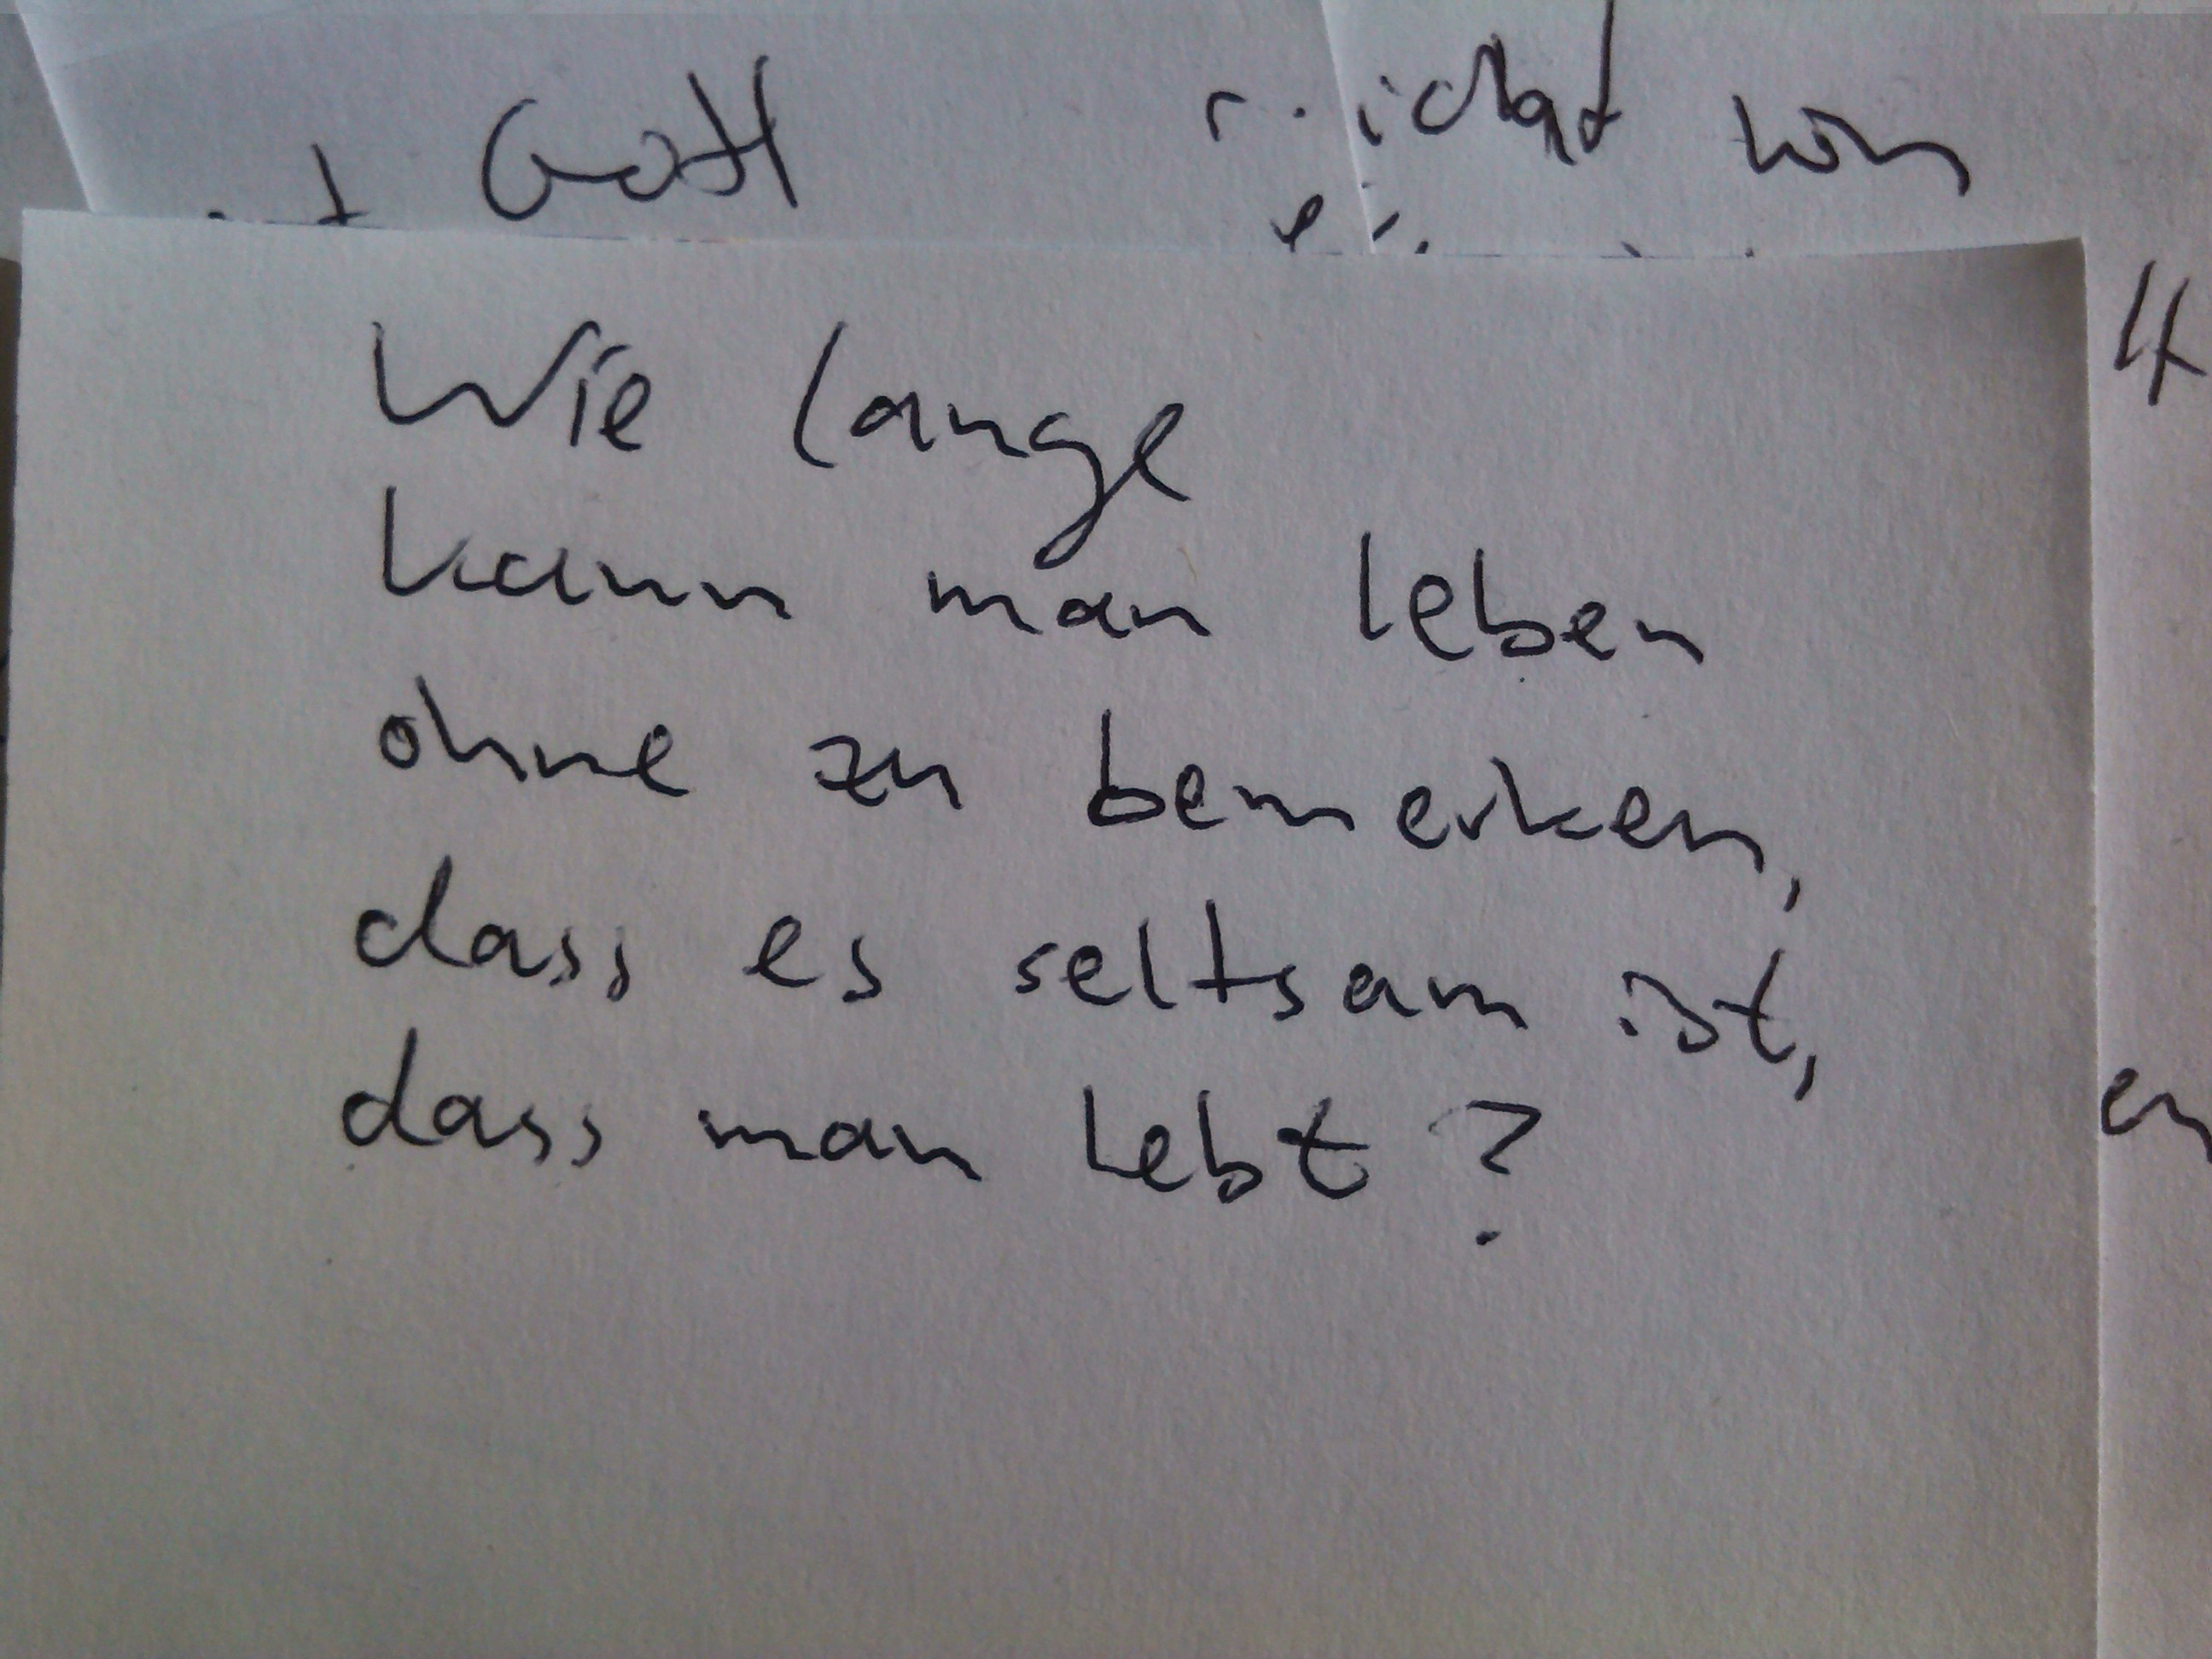 Gott
Wie lange
kann man leben
ohne zu bemerken,
dass es seltsam ist,
dass man lebt?